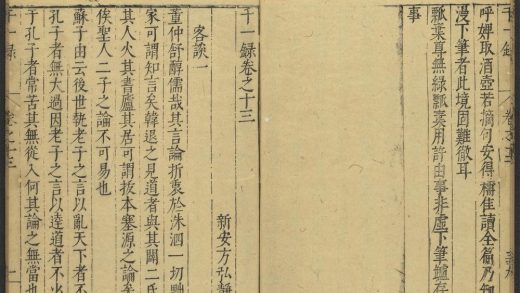 呼婢取酒壺若摘何安得
讀全篇乃知
漫下筆者此境固難徹耳
瓢葉尋無綠瓢葉用許由事非虛下筆墟存
事
千一錄卷之十三
新安方弘靜
客談一
董仲舒醇儒哉其言論折衷於洙泗一切黜
家可謂知言矣韓退之見道者與其闢二氏
其人火其書廬其居可謂拔本塞源之論矣
俟聖人二子之論不可易也
蘇子由云後世執老子之言以亂天下者
孔子者無大過因老子之言以達道者不少
于孔子者常苦其無從入何其論之無當也
千一錄
卷之十三
一